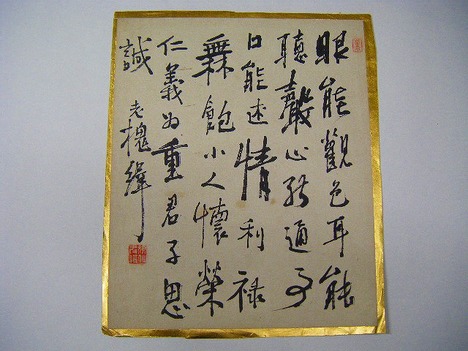 眼能觀色耳能
聽心能通
口能述情利祿
無飽小人懷榮
仁義为重君子思
誠 老槐緯